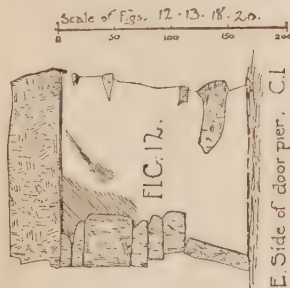 Scale of Figs. 12 - 13 - 18 - 20.
0 50 100 200
FIG: 12.
E. Side of door pier. C.I